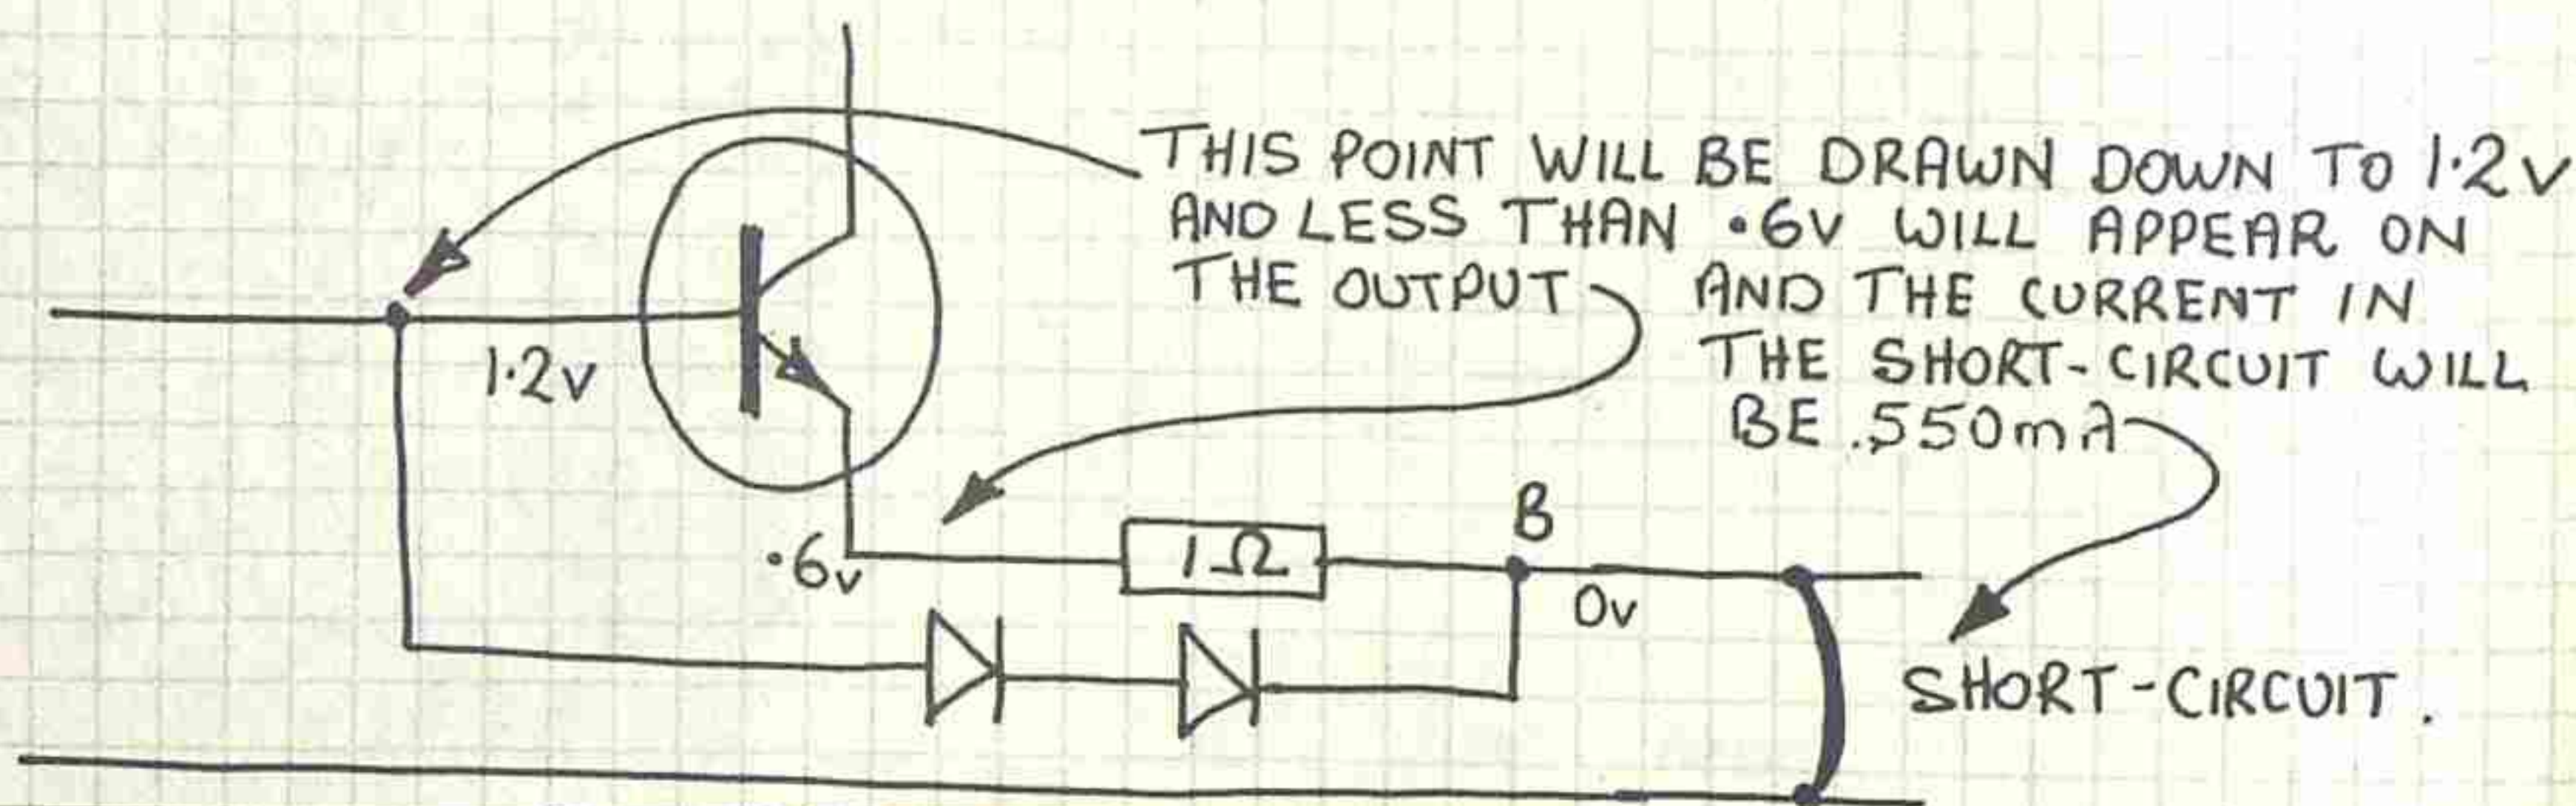 THIS POINT WILL BE DRAWN DOWN TO 1.2v
AND LESS THAN .6V WILL APPEAR ON
THE OUTPUT
AND THE CURRENT IN
THE SHORT-CIRCUIT WILL
BE .550mA
1.2v
B
.6v
1Ω
0v
SHORT-CIRCUIT.